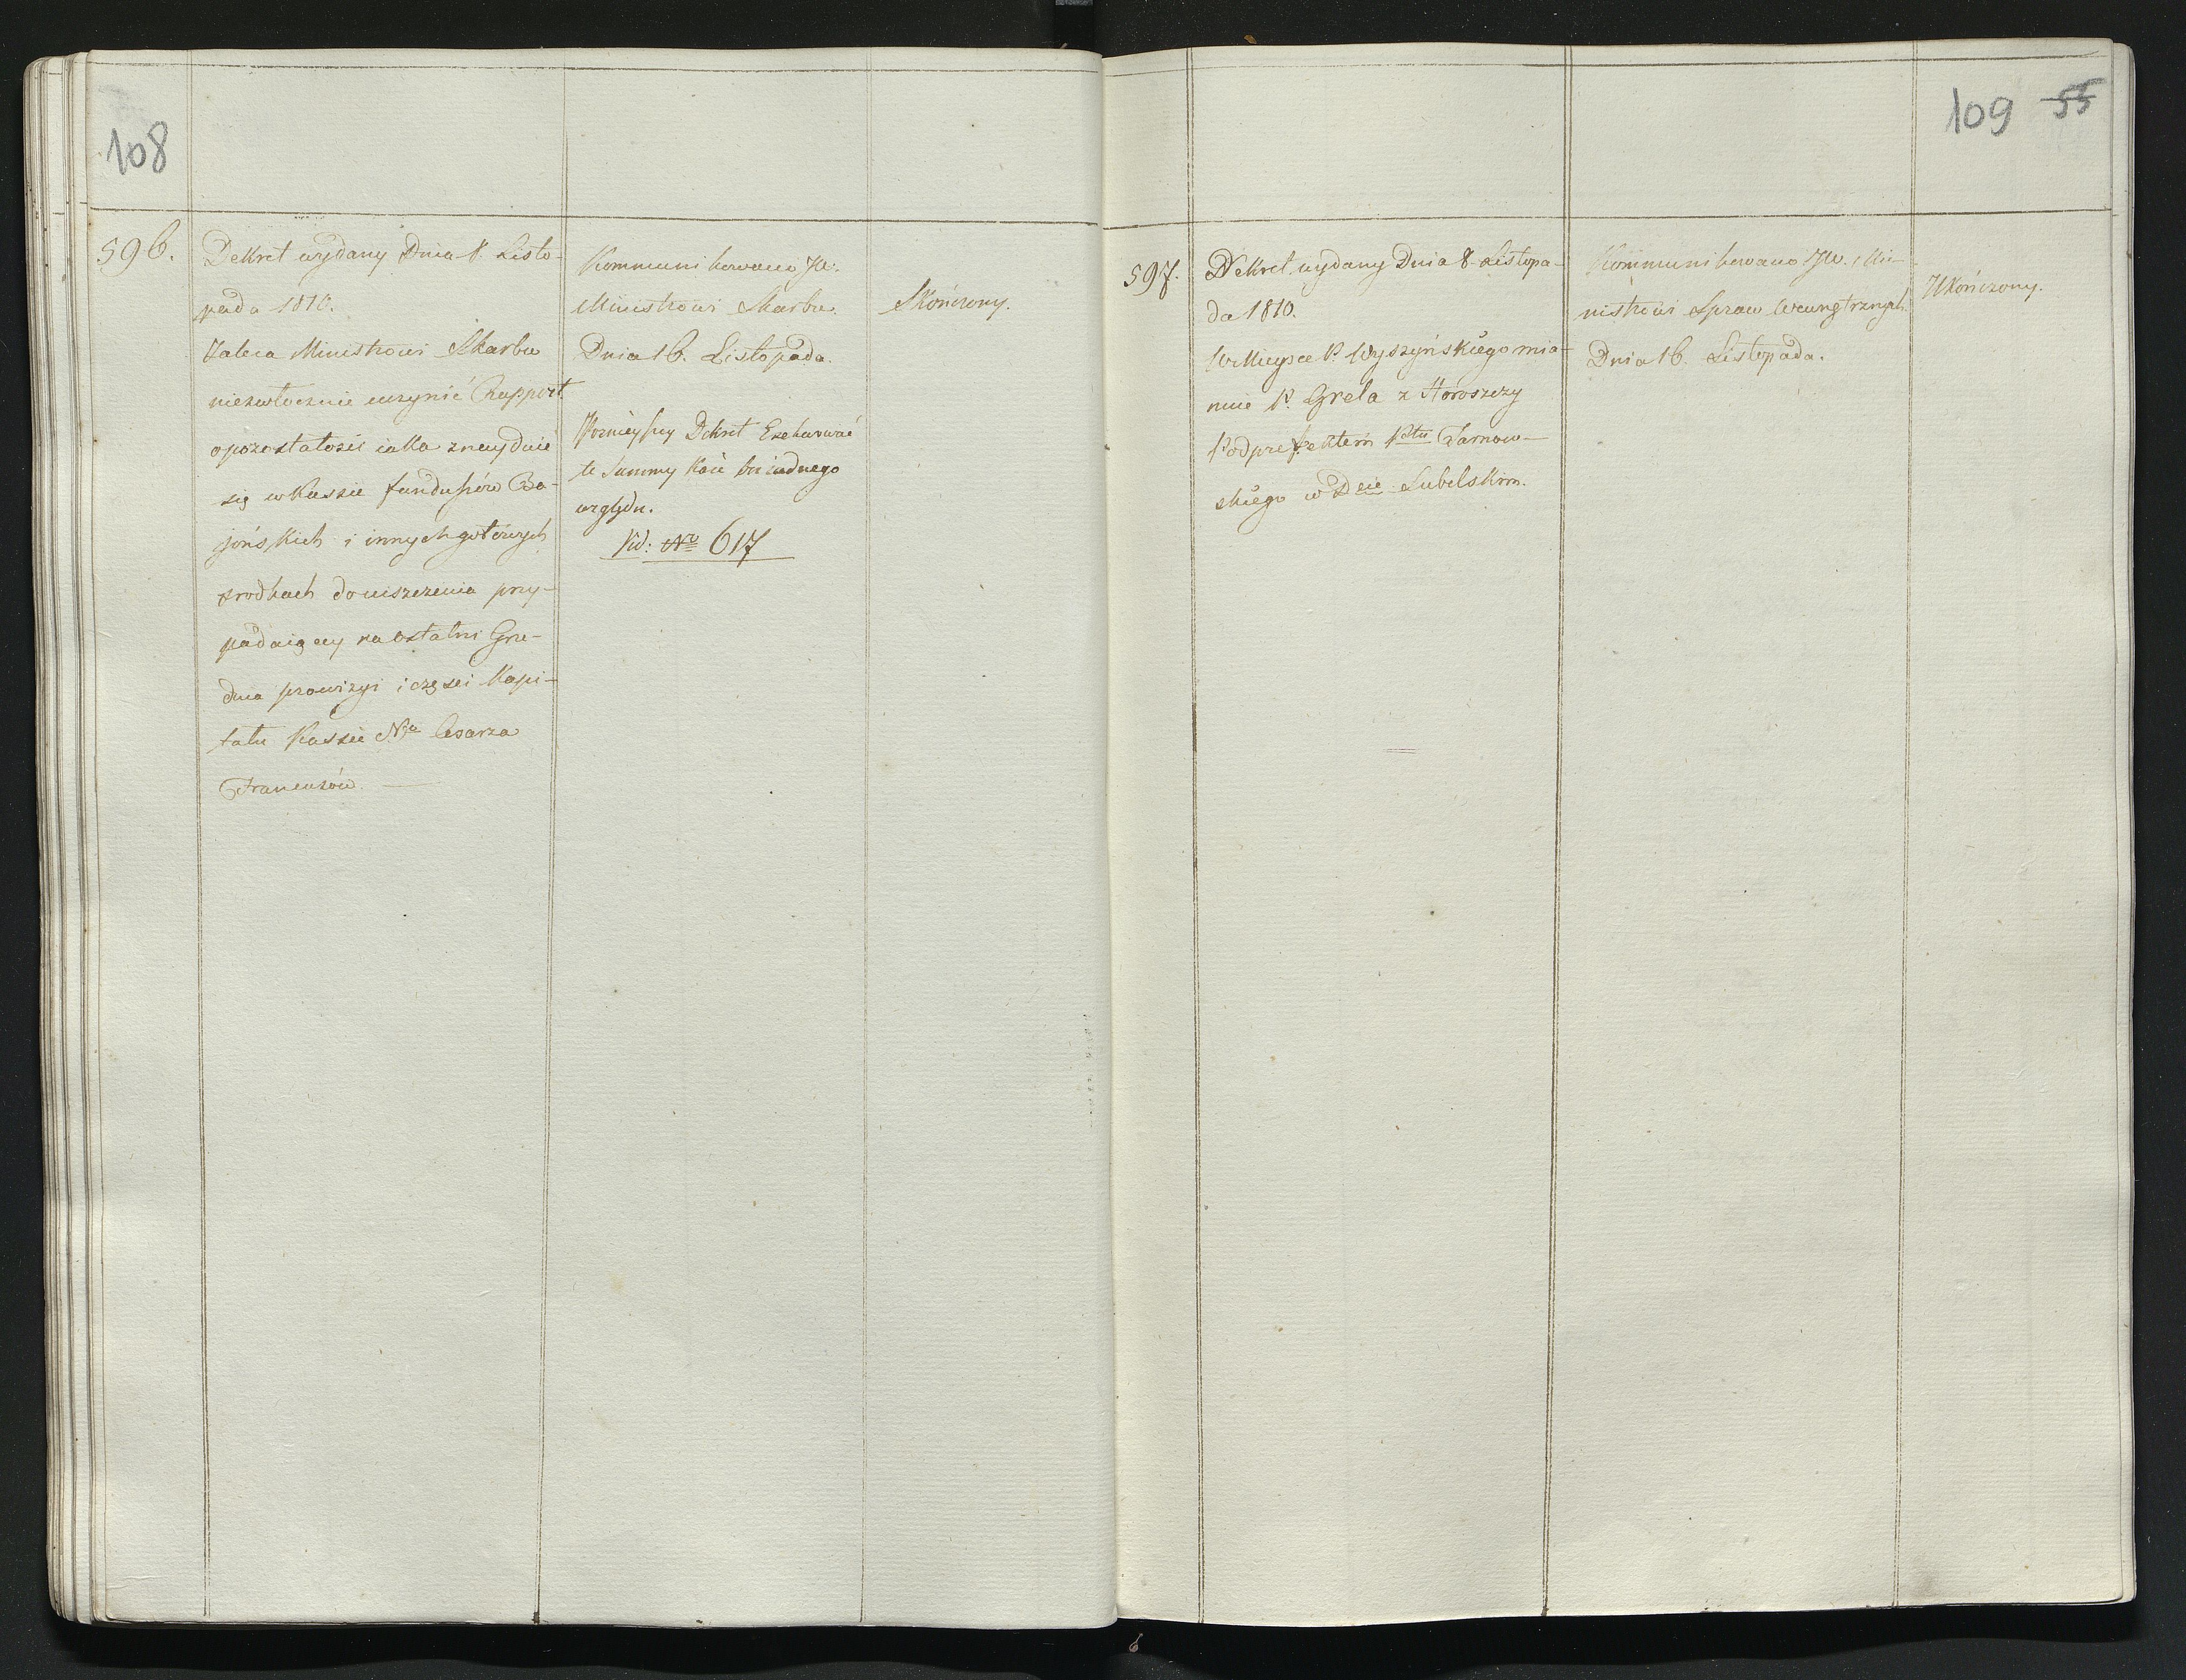 108
596.
Dekret wydany Dnia 8. Listo-
pada 1810.
Zaleca Ministrowi Skarbu
niezwłocznie uczynić Rapport
o pozostałości iaka znayduie
się w Kassie funduszów Ba-
jońskich i innych gotowych
srodkach do uiszczenia przy-
padaiącey na ostatni Gru-
dnia prowizyi i części Kapi-
tału Kassie Nja Cesarza
Francuzów. —
Kommunikowano JW.
Ministrowi Skarbu.
Dnia 16. Listopada.
Poznieyszy Dekret Exekwować
te Summy Każe bez żadnego
względu.
Vid: No 617
Skończony.
109 55
597.
Dekret wydany Dnia 8. Listopa-
da 1810.
W Mieysce P. Wyszyńskiego mia-
nuie P. Grela z Horoszczy
Podprefektem Pttu Tarnow-
skiego w Dcie Lubelskim.
Kommunikowano JW. Mi-
nistrowi Spraw Wewnętrznych.
Dnia 16. Listopada.
Ukończony.